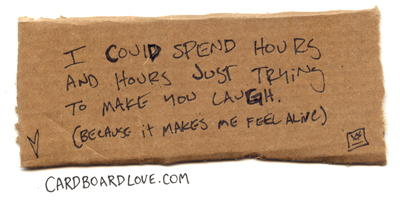 I COULD SPEND HOURS
AND HOURS JUST TRYING
TO MAKE YOU LAUGH.
(BECAUSE IT MAKES ME FEEL ALIVE)
CARDBOARDLOVE.COM